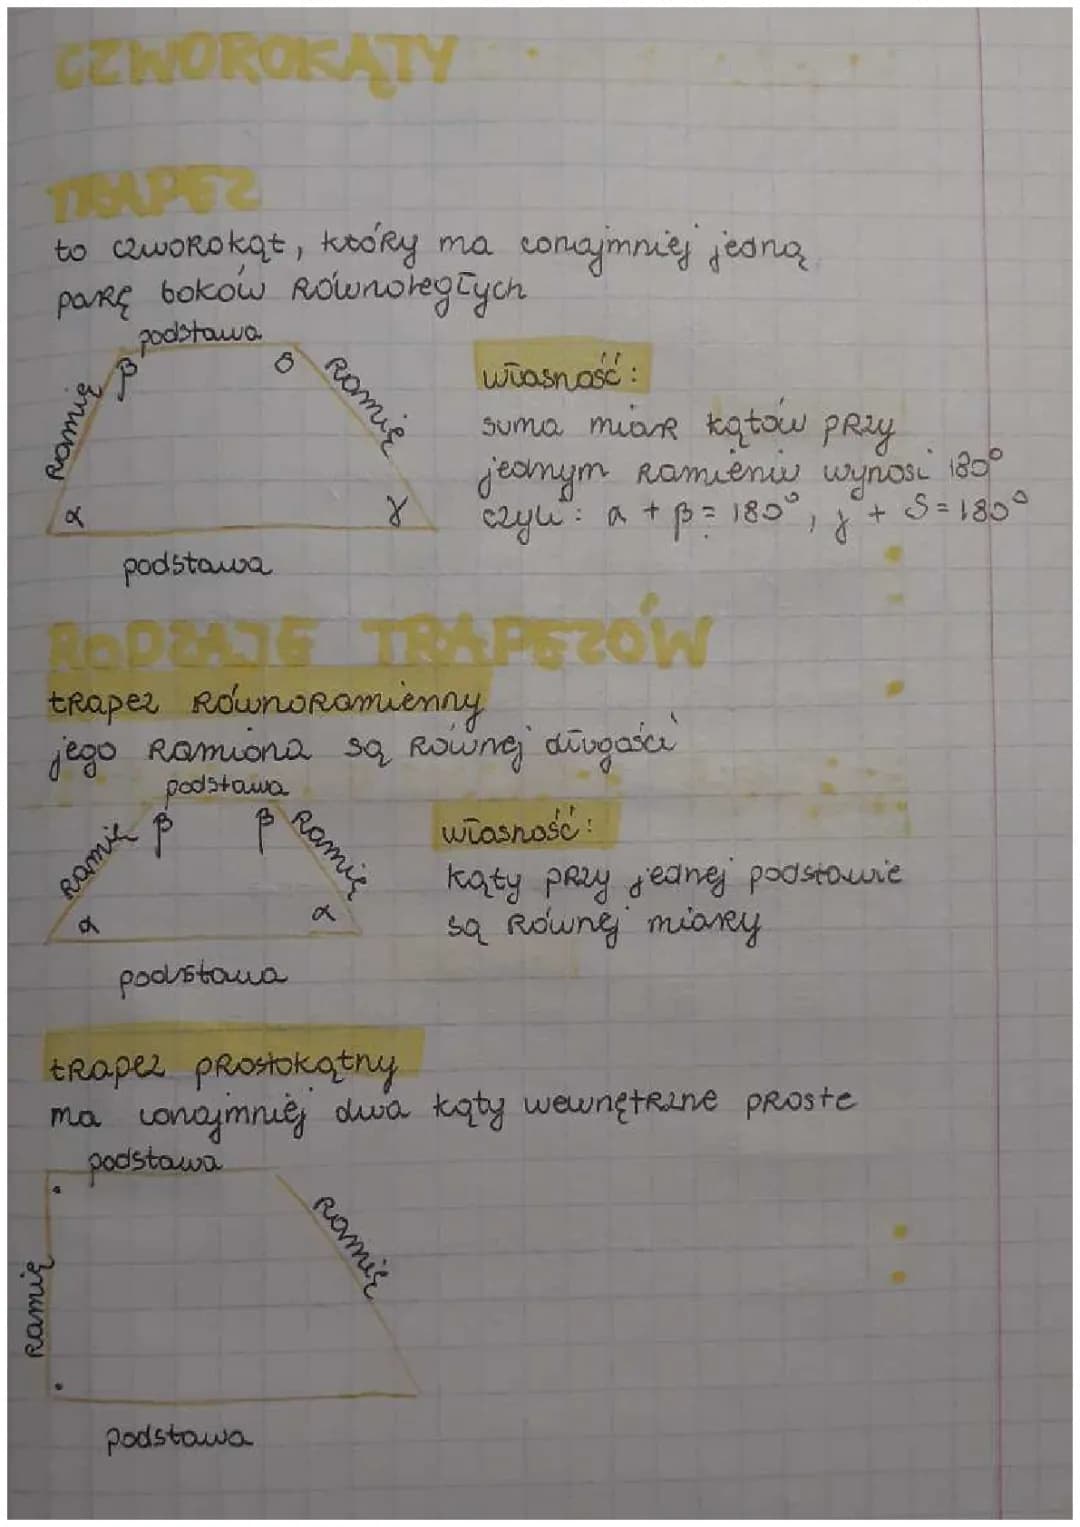 CZWOROKĄTY
TRAPEZ
to czworokąt, który ma conajmniej jedną
parę boków równoległych
podstawa
ramię β δ ramię
α γ
podstawa
własność:
suma miar kątów przy
jednym ramieniu wynosi 180°
czyli: α + β = 180°, γ + δ = 180°
RODZAJE TRAPEZÓW
trapez równoramienny
jego ramiona są równej długości
podstawa
ramię β β ramię
α α
podstawa
własność:
kąty przy jednej podstawie
są równej miary
trapez prostokątny
ma conajmniej dwa kąty wewnętrzne proste
podstawa
ramię
ramię
podstawa